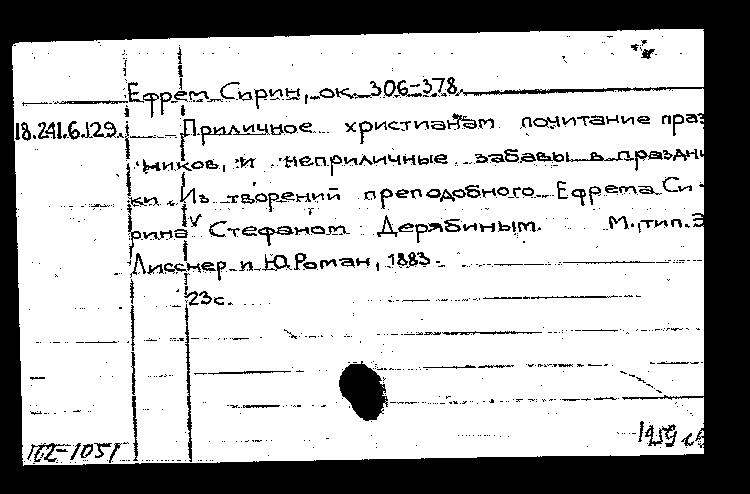 Ефрем Сирин, ок. 306-378.
18.241.6.129. Приличное христианам почитание праз
ников, и неприличные забавы в праздни
ки. Из творений преподобного Ефрема Си-
рина Стефаном Дерябиным. М., тип. Э
Лисснер и Ю.Роман, 1883.
23с.
162-1051